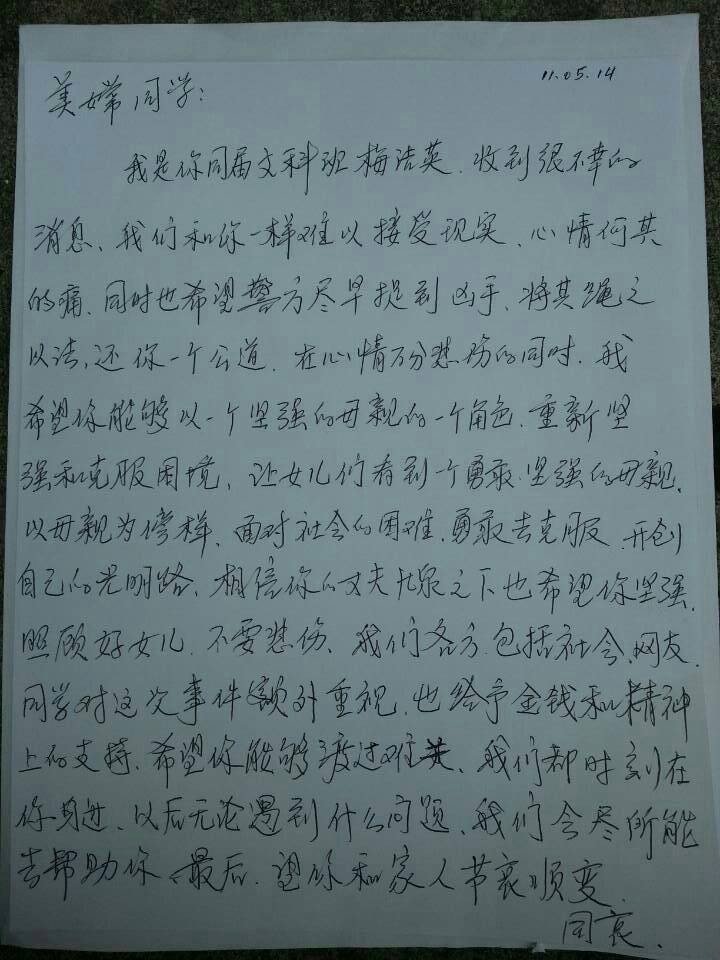 11.05.14
美嫦同学:
我是你同届文科班梅洁英.收到很不幸的
消息、我们和你一样难以接受现实、心情何其
的痛.同时也希望警方尽早捉到凶手、将其绳之
以法,还你一个公道.在心情万分悲伤的同时.我
希望你能够以一个坚强的母亲的一个角色.重新坚
强和克服困境、让女儿们看到一个勇敢.坚强的母亲.
以母亲为傍样、面对社会的困难.勇敢去克服.开创
自己的光明路、相信你的丈夫九泉之下也希望你坚强.
照顾好女儿.不要悲伤、我们各方.包括社会.网友.
同学对这次事件额外重视.也给予金钱和精神
上的支持.希望你能够渡过难关、我们都时刻在
你身边、以后无论遇到什么问题、我们会尽所能
去帮助你、最后.望你和家人节哀顺变.
同哀.